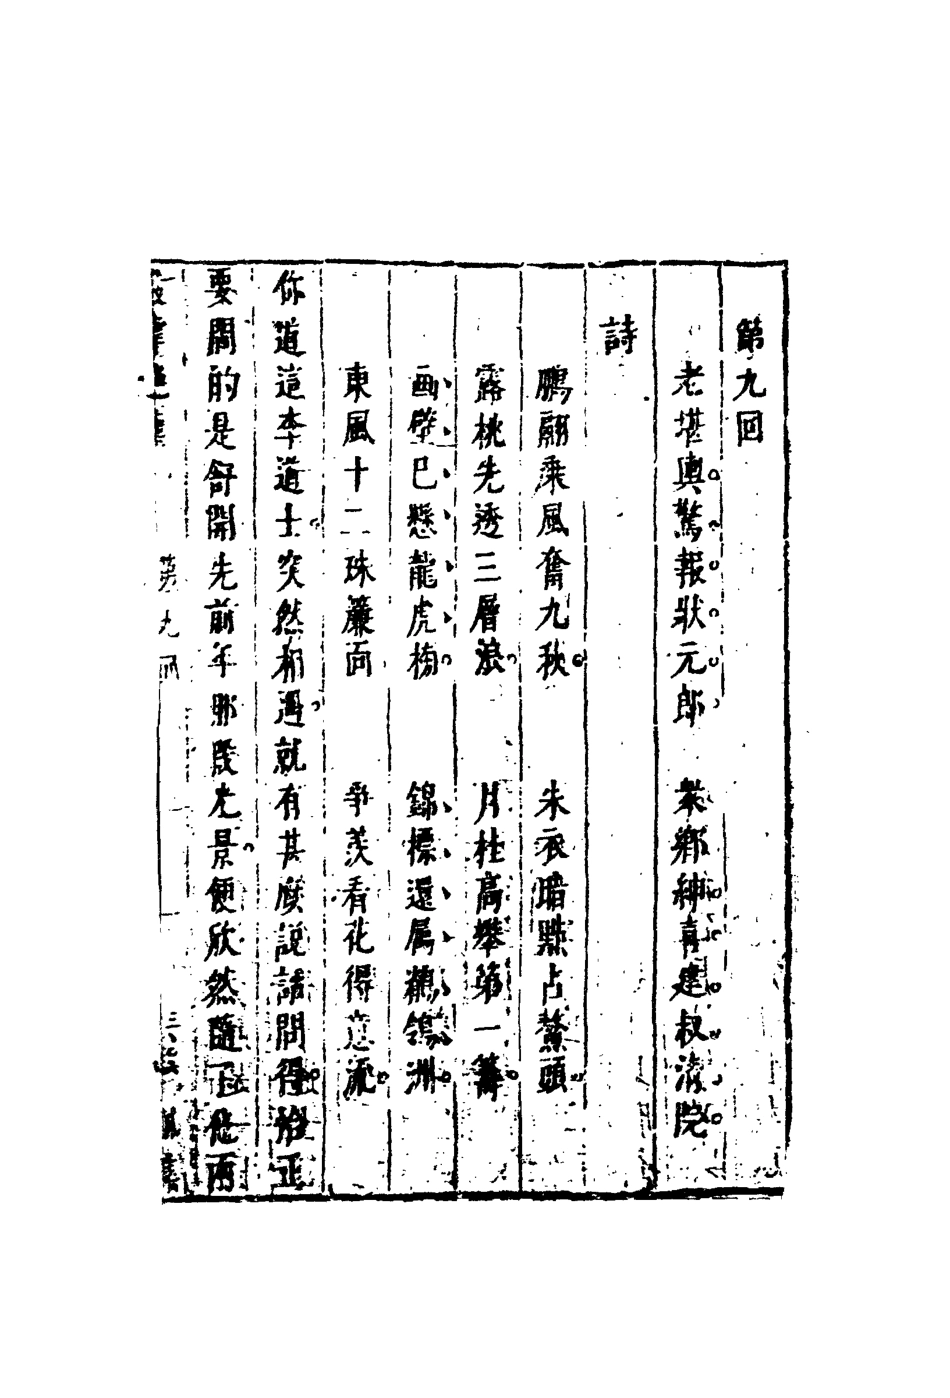 第九回
老堪輿驚報狀元郎　衆鄉紳喜建叔清院
詩
鵬翮乘風奮九秋　朱衣暗點占鰲頭
露桃先透三層浪　月桂高攀第一籌
画壁已懸龍虎榜　錦標還属鶺鴒洲
東風十二珠簾面　爭羨看花得意流
你道這李道士突然相遇就有甚麽説話問得恰正
要問的是舒開先前年那段光景便欣然隨下他兩
第九回